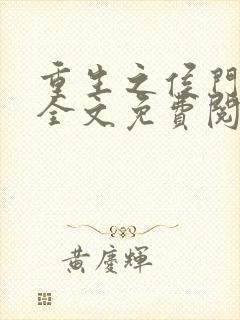 重生之侯門
全文免費閱
黃慶輝